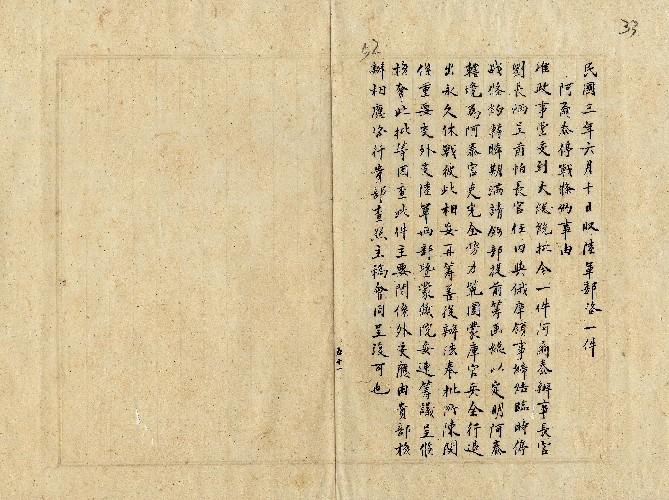 33
52
民國三年六月十日收陸軍部咨一件
阿爾泰停戰條約事由
准政事堂交到大總統批令一件阿爾泰辦事長官
劉長炳呈前帕長官任內與俄庫領事締結臨時停
戰條約轉瞬期滿請飭部提前籌畫總以定明阿泰
轄境為阿泰官吏完全勢力範圍蒙庫官兵全行退
出永久休戰彼此相安再籌善後辦法奉批所陳関
係重要交外交陸軍兩部暨蒙藏院妥速籌議呈候
核奪此批等因查此件主要関係外交應由貴部核
辦相應咨行貴部查照主稿會同呈復可也
五十一